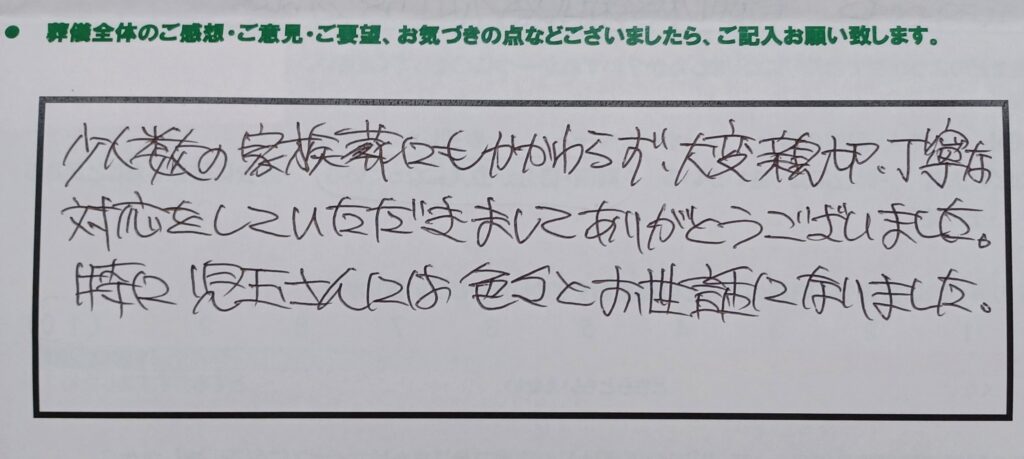 ● 葬儀全体のご感想・ご意見・ご要望、お気づきの点などございましたら、ご記入お願い致します。
少人数の家族葬にもかかわらず、大変親切、丁寧な
対応をしていただきましてありがとうございました。
特に児玉さんには色々とお世話になりました。